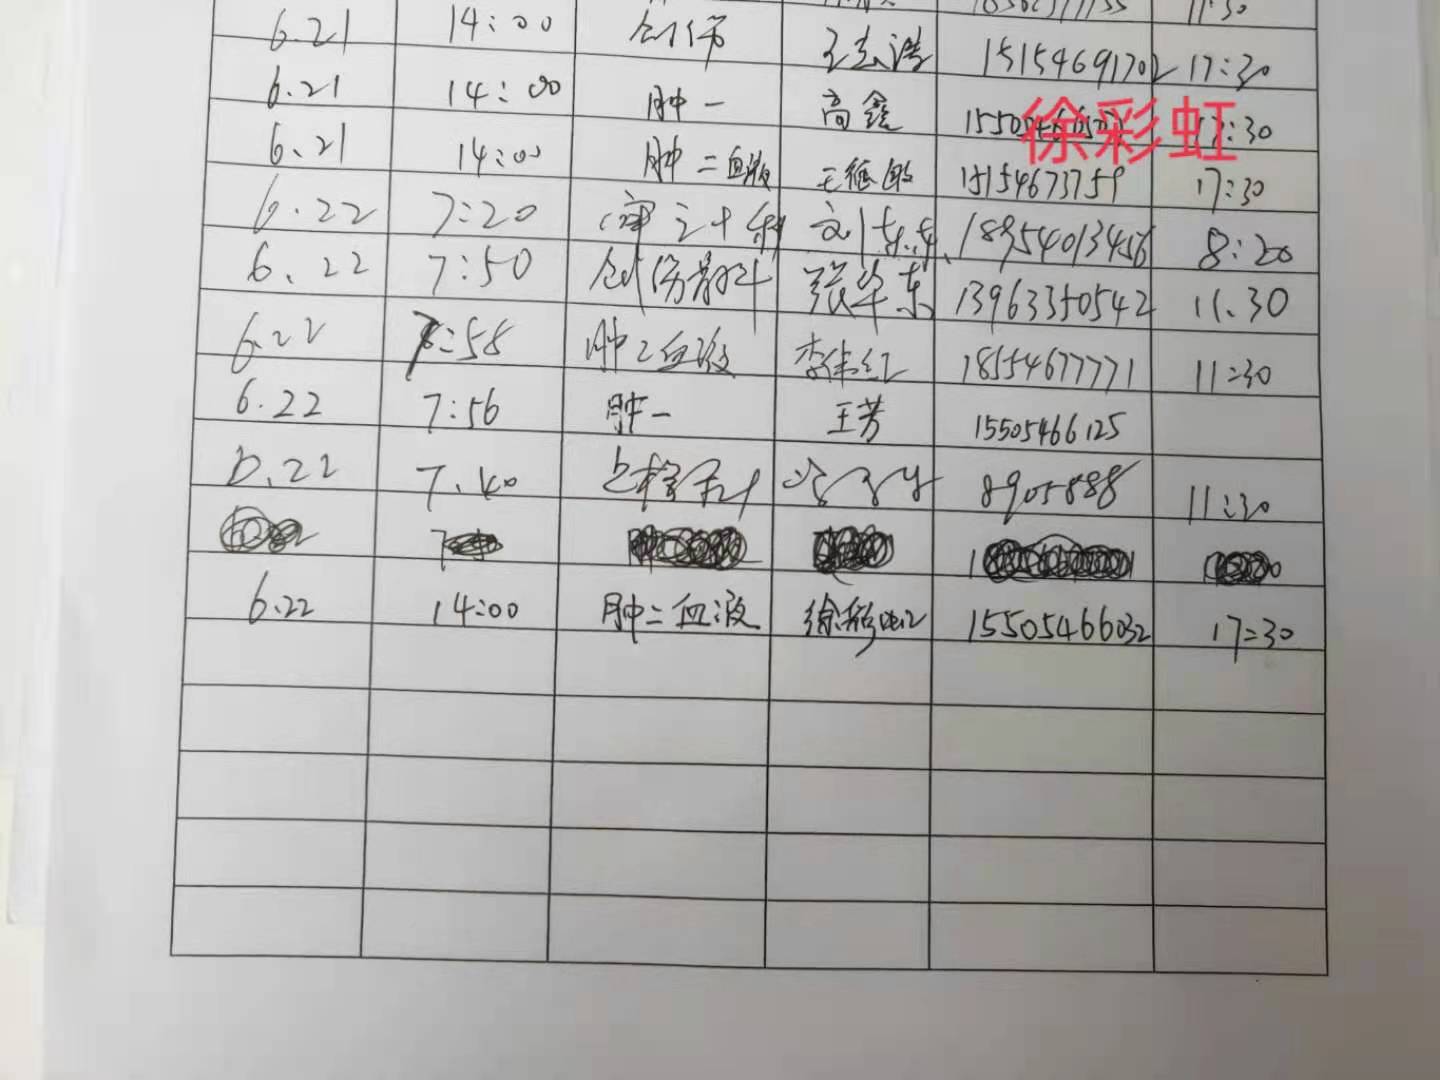 11:30
6.21 14:00 创伤 王志浩 15154691702 17:30
6.21 14:00 肿一 高鑫 17:30
徐彩虹
6.21 14:00 肿二血液 王继敏 15154673759 17:30
6.22 7:20 刘东东 18954013456 8:20
6.22 7:50 创伤骨科 张华东 13963350542 11.30
6.22 7:58 肿二血液 李伟红 18554677771 11:30
6.22 7:56 肿一 王芳 15505466125
6.22 7.40 8905888 11:30
6.22 14:00 肿二血液 徐彩虹 15505466032 17:30